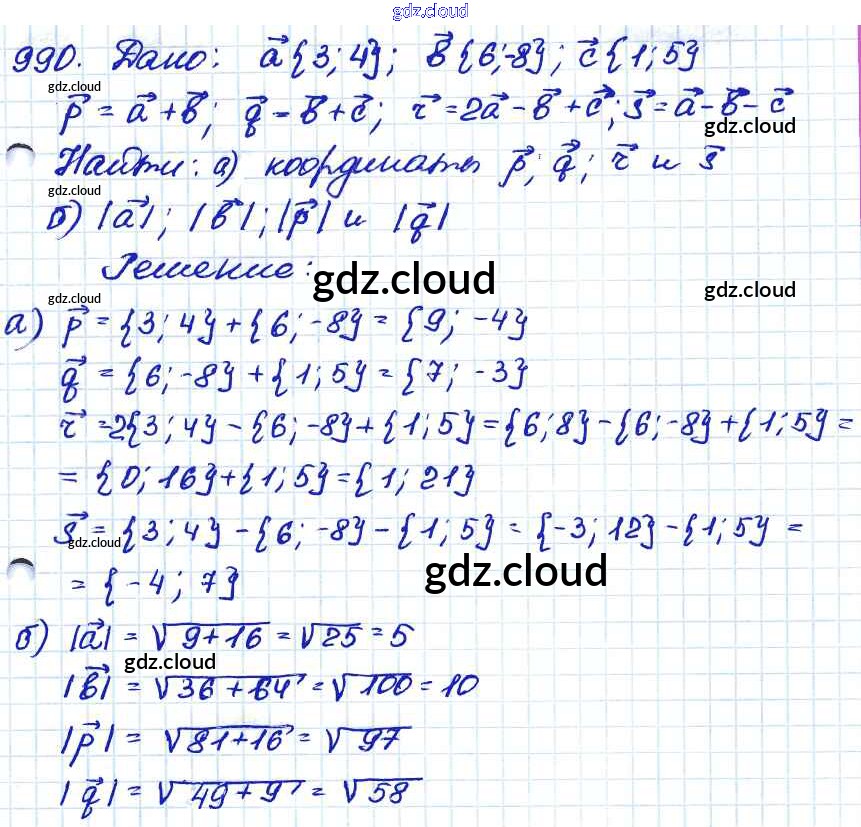 gdz.cloud
990. Дано: a⃗{3; 4}; b⃗{6;-8}; c⃗{1; 5}
gdz.cloud
p⃗ = a⃗+b⃗; q⃗ = b⃗+c⃗; r⃗ = 2a⃗ - b⃗ + c⃗; s⃗ = a⃗ - b⃗ - c⃗
gdz.cloud
Найти: а) координаты p⃗, q⃗; r⃗ и s⃗
gdz.cloud
б) |a⃗|; |b⃗|; |p⃗| и |q⃗|
Решение:
gdz.cloud gdz.cloud
gdz.cloud
а) p⃗ = {3; 4} + {6; -8} = {9; -4}
q⃗ = {6; -8} + {1; 5} = {7; -3}
r⃗ = 2{3; 4} - {6; -8} + {1; 5} = {6; 8} - {6; -8} + {1; 5} =
= {0; 16} + {1; 5} = {1; 21}
s⃗ = {3; 4} - {6; -8} - {1; 5} = {-3; 12} - {1; 5} =
gdz.cloud
= {-4; 7}
gdz.cloud
б) |a⃗| = √9+16 = √25 = 5
gdz.cloud
|b⃗| = √36+64 = √100 = 10
|p⃗| = √81+16 = √97
|q⃗| = √49+9 = √58